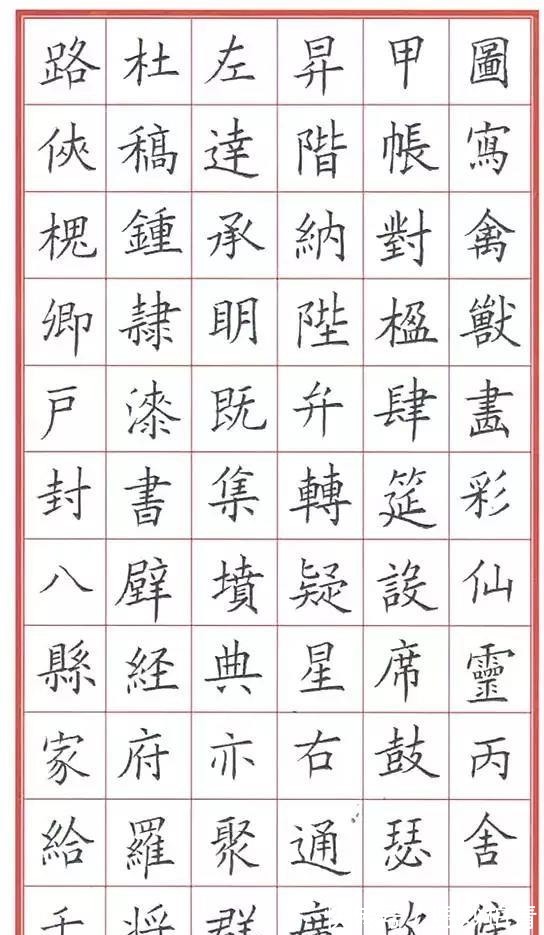 圖寫禽獸畫彩仙靈丙舍
甲帳對楹肆筵設席鼓瑟
昇階納陛弁轉疑星右通
左達承明既集墳典亦聚
杜稿鍾隷漆書壁経府羅
路俠槐卿戶封八縣家給